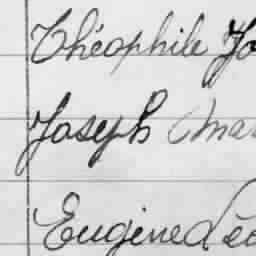 Théophile Jo
Joseph Omar
Eugène Léo